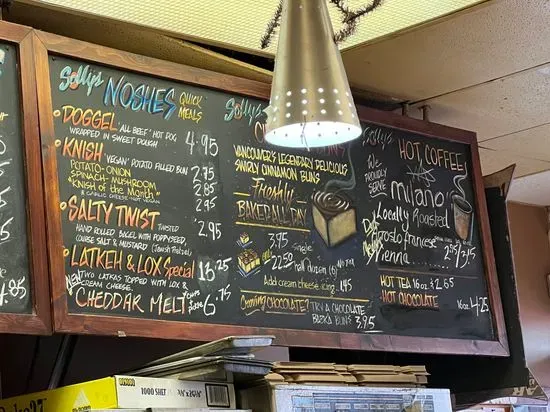 Solly's
NOSHES QUICK MEALS
DOGGEL "ALL BEEF" HOT DOG 4.95
WRAPPED IN SWEET DOUGH
KNISH "VEGAN" POTATO FILLED BUN 2.75
POTATO-ONION 2.75
SPINACH-MUSHROOM 2.85
"KNISH of the MONTH" 2.75
& GARLIC CHEESE-NOT VEGAN
SALTY TWIST TWISTED 2.95
HAND ROLLED BAGEL WITH POPPYSEED,
COURSE SALT & MUSTARD (Jewish Pretzel)
LATKEH & LOX Special 13.25
New TWO LATKAS TOPPED WITH LOX &
CREAM CHEESE.
CHEDDAR MELT 6.75
4.85
Solly's
VANCOUVER'S LEGENDARY DELICIOUS
SWIRLY CINNAMON BUNS
Freshly
BAKED ALL DAY
3.95 Single
22.50 Half Dozen (6)
Add cream cheese icing 1.45
Craving CHOCOLATE? TRY A CHOCOLATE
BABKA BUNS 3.95
Solly's
We PROUDLY SERVE
HOT COFFEE
milano
Locally
Roasted
Francese
Vienna
HOT TEA 16oz 2.65
HOT CHOCOLATE
16oz 4.25
1000 SHEET